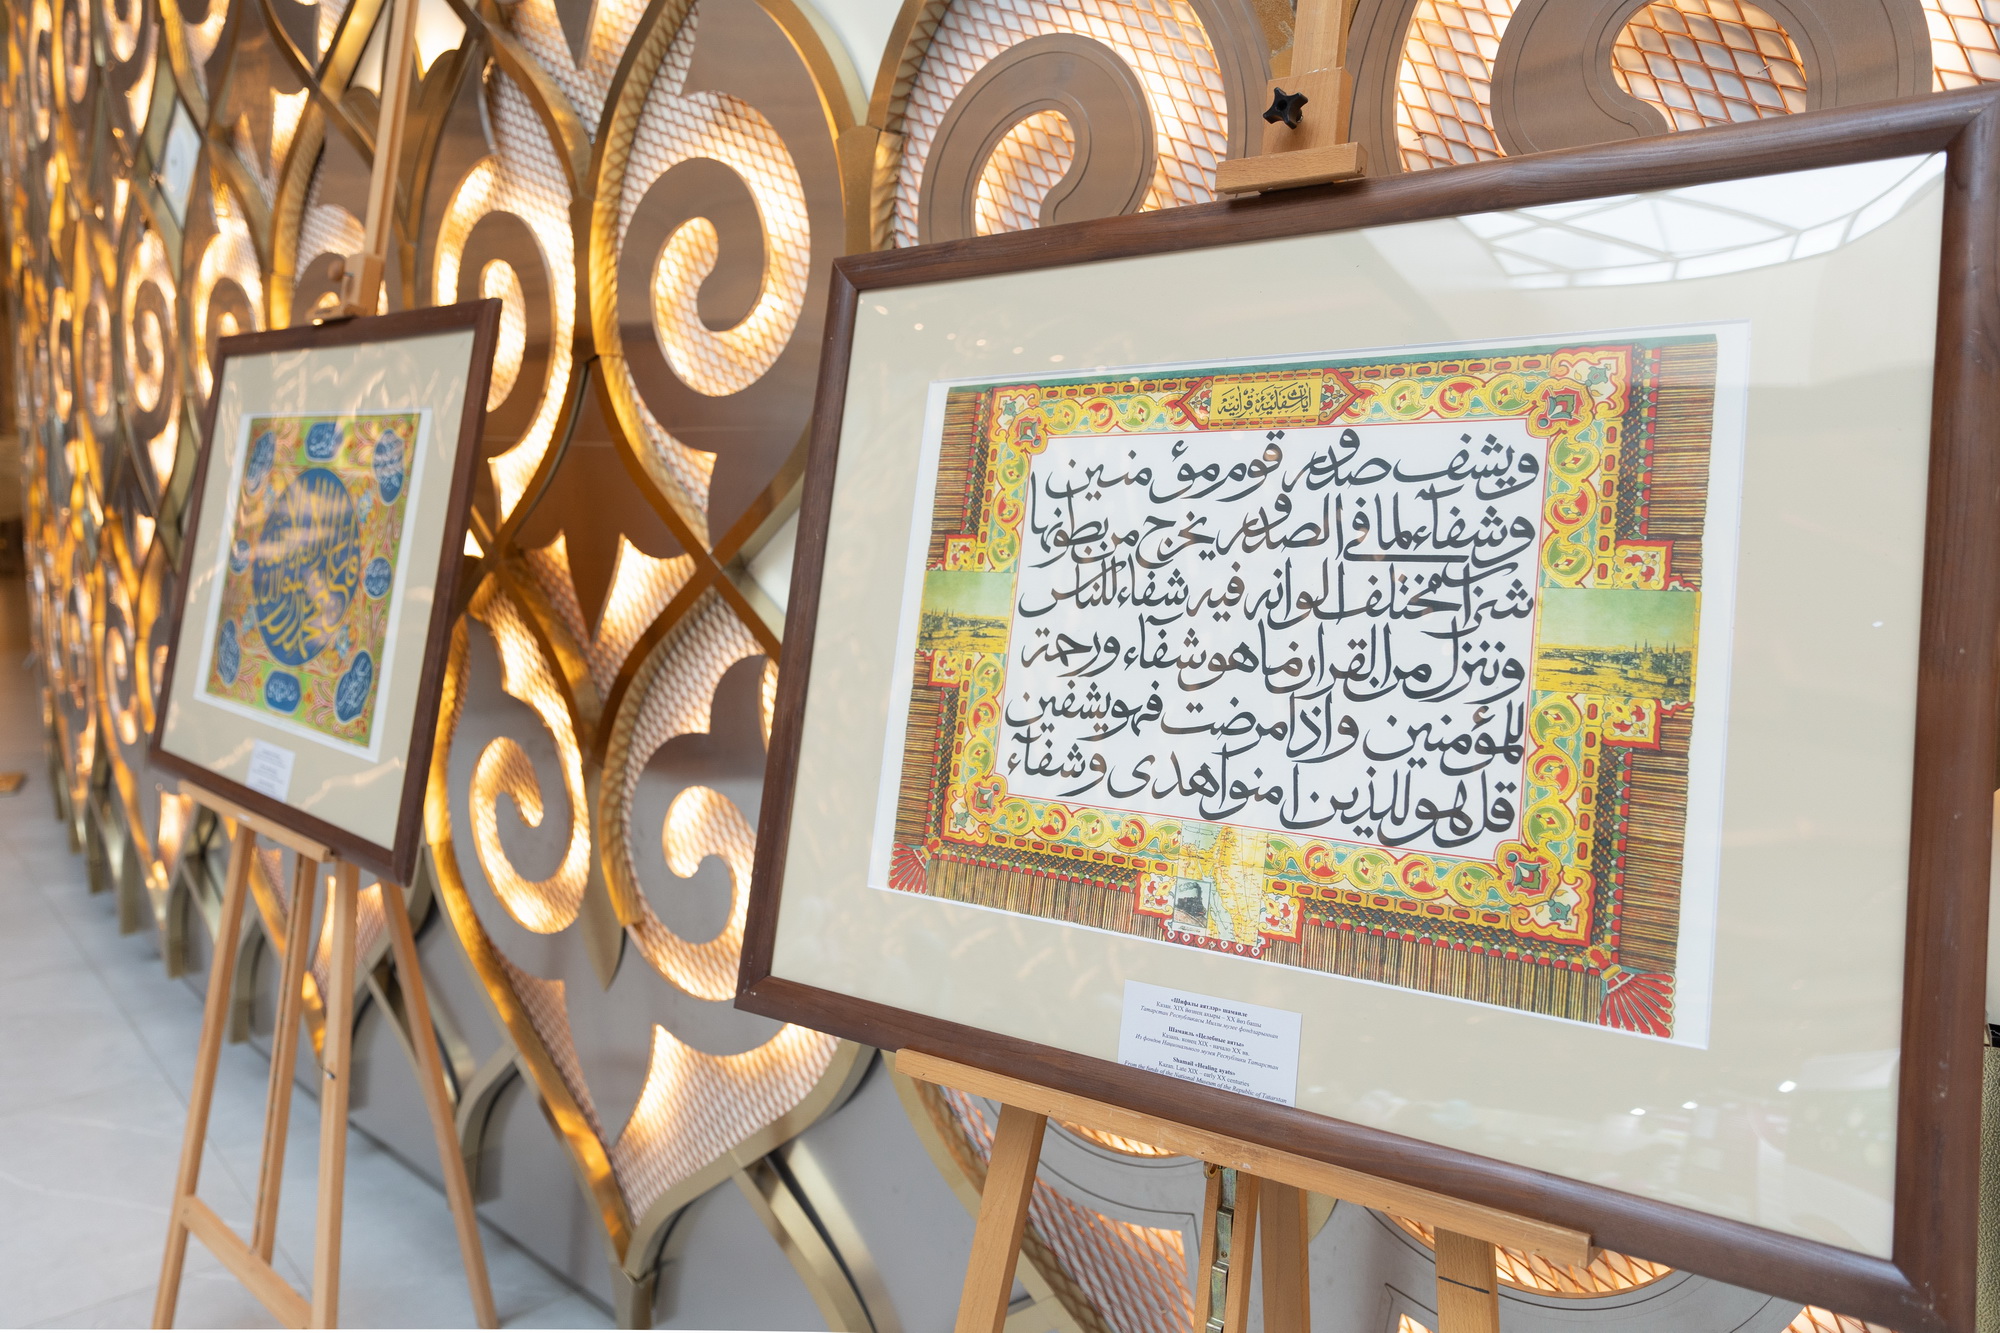 آيات شفائية قرآنيه
ويشف صدور قوم مؤمنين
وشفآء لما فى الصدور يخرج من بطونها
شراب مختلف الوانه فيه شفاء للناس
وننزل من القران ما هو شفآء ورحمة
للمؤمنين واذا مرضت فهو يشفين
قل هو للذين امنوا هدى وشفآء
«Шифалы аятләр» шамаиле
Казан. XIX йөзнең ахыры – XX йөз башы
Татарстан Республикасы Милли музее фондларыннан
Шамаиль «Целебные аяты»
Казань. конец XIX - начало XX вв.
Из фондов Национального музея Республики Татарстан
Shamail «Healing ayats»
Kazan. Late XIX – early XX centuries
From the funds of the National Museum of the Republic of Tatarstan